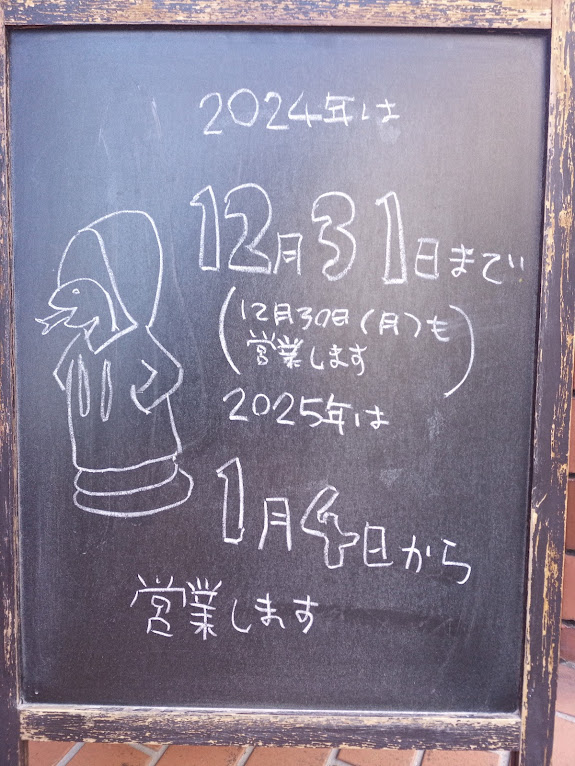 2024年は
12月31日まで
(12月30日(月)も
営業します)
2025年は
1月4日から
営業します